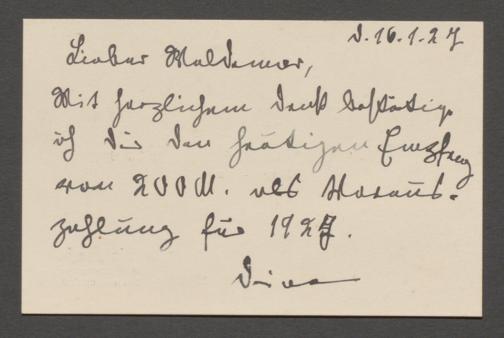 d. 16.1.27
Lieber Waldemar,
Mit herzlichem Dank bestätige
ich Dir den heutigen Empfang
von 200 M. als Voraus-
zahlung für 1927.